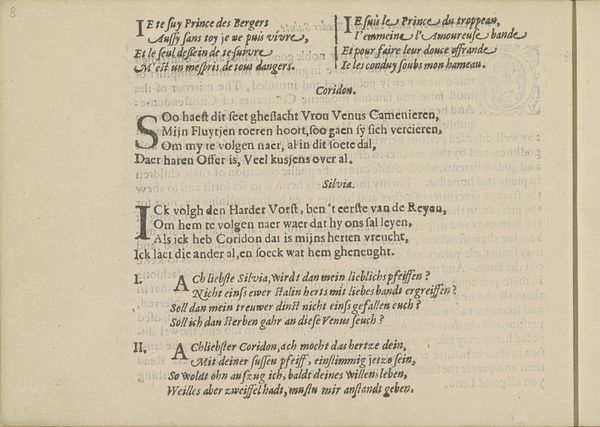 8
IE te suy Prince des Bergers
Aussy sans toy je ne puis vivre,
Et le seul dessein de te suivre
M'est un mespris de tous dangers.
IE suis le Prince du troppeau,
I'emmeine l'Amoureuse bande
Et pour faire leur douce offrande
Ie les conduy soubs mon hameau.
Coridon.
SOo haest dit soet gheslacht Vrou Venus Camenieren,
Mijn Fluytjen roeren hoort, soo gaen sy sich vercieren,
Om my te volgen naer, al in dit soete dal,
Daer haren Offer is, Veel kusjens over al.
Silvia.
ICk volgh den Harder Vorst, ben 't eerste van de Reyen,
Om hem te volgen naer waer dat hy ons sal leyen,
Als ick heb Coridon dat is mijns herten vreucht,
Ick laet die ander al, en soeck wat hem gheneught.
I. ACh liebste Silvia, wirdt dan mein lieblichs pfeiffen?
Nicht einss ewer stalin herts mit liebes bandt ergreiffen?
Soll dan mein trewer dinst nicht einss gefallen euch?
Soll ich dan sterben gahr an diese Venus seuch?
II. ACh liebster Coridon, ach mocht das hertze dein,
Mit deiner sussen pfeiff, einstimmig jetzo sein,
So woldt ohn aufzug ich, baldt deines willens leben,
Weilles aber zweiffel hadt, mustu mir anstandt geben.